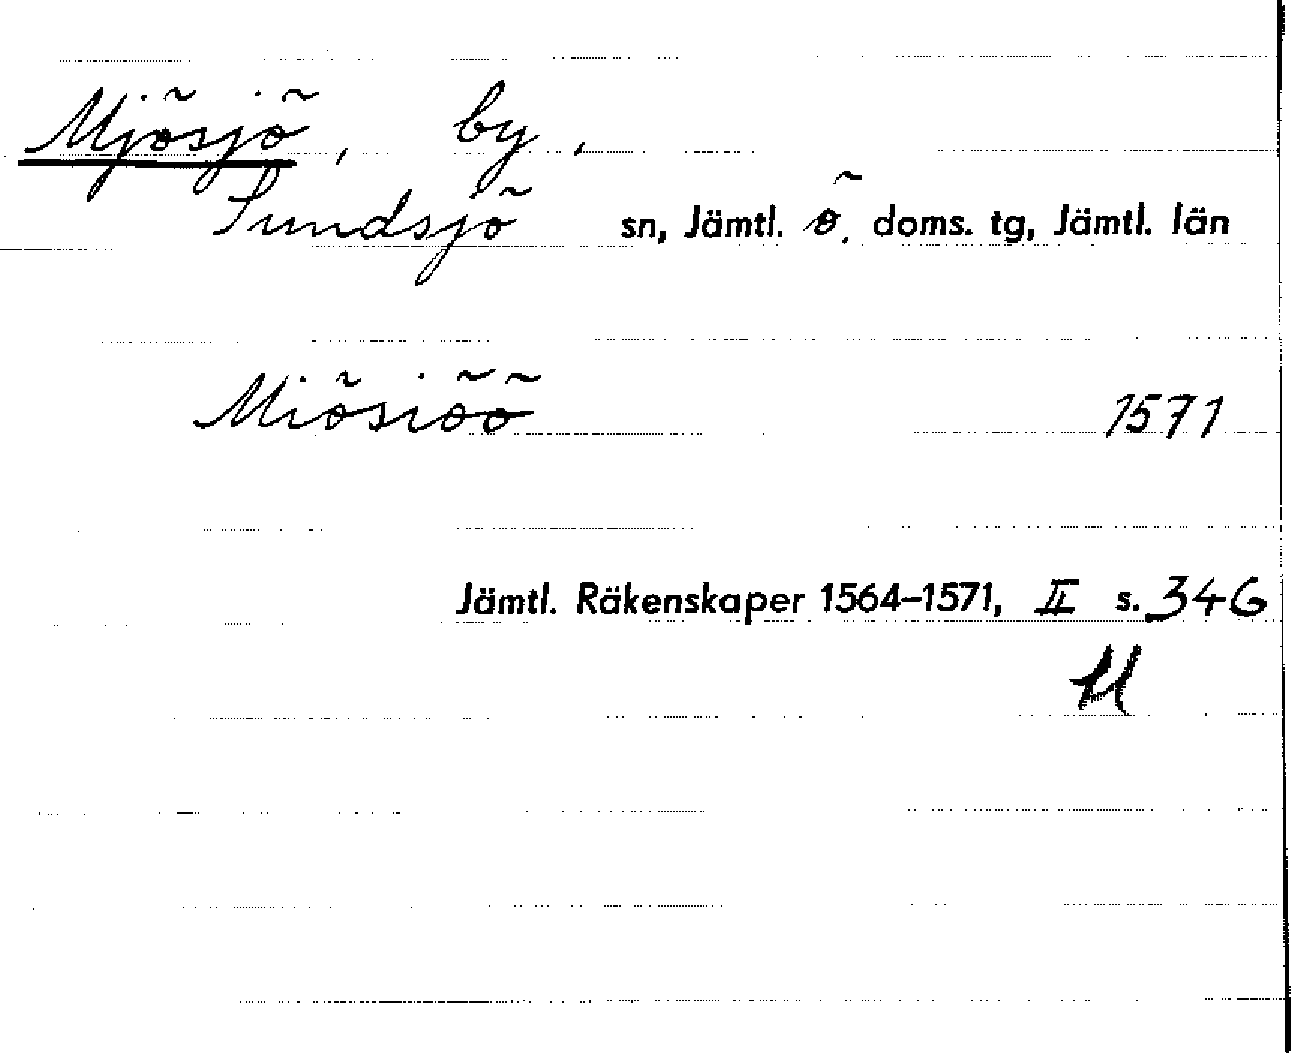 Mjösjö, by,
Sundsjö sn, Jämtl. ö. doms. tg, Jämtl. län
Miösiöö 1571
Jämtl. Räkenskaper 1564–1571, II s. 346